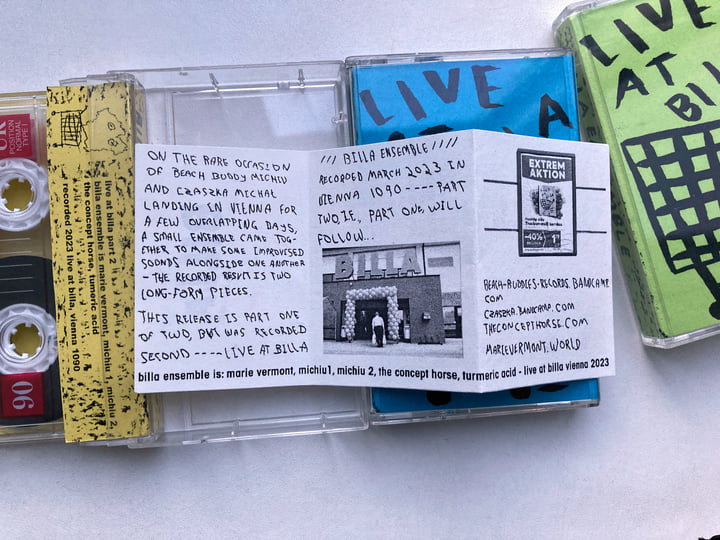 UR
POSITION
NORMAL
TYPE I
90
live at billa part 2
billa ensemble is marie vermont, michiu 1, michiu 2
the concept horse, tumeric acid
recorded 2023 live at billa, vienna 1090
ON THE RARE OCCASION
OF BEACH BUDDY MICHIU
AND CZASZKA MICHAŁ
LANDING IN VIENNA FOR
A FEW OVERLAPPING DAYS,
A SMALL ENSEMBLE CAME TOG-
ETHER TO MAKE SOME IMPROVISED
SOUNDS ALONGSIDE ONE ANOTHER
- THE RECORDED RESULT IS TWO
LONG-FORM PIECES.
THIS RELEASE IS PART ONE
OF TWO, BUT WAS RECORDED
SECOND ---- LIVE AT BILLA
/// BILLA ENSEMBLE ////
RECORDED MARCH 2023 IN
VIENNA 1090 ---- PART
TWO, IE, PART ONE, WILL
FOLLOW...
BILLA
EXTREM
AKTION
-40%
BEACH-BUDDIES-RECORDS.BANDCAMP
COM
CZASZKA.BANDCAMP.COM
THECONCEPTHORSE.COM
MARIEVERMONT.WORLD
billa ensemble is: marie vermont, michiu1, michiu 2, the concept horse, turmeric acid - live at billa vienna 2023
LIVE
LIVE
AT